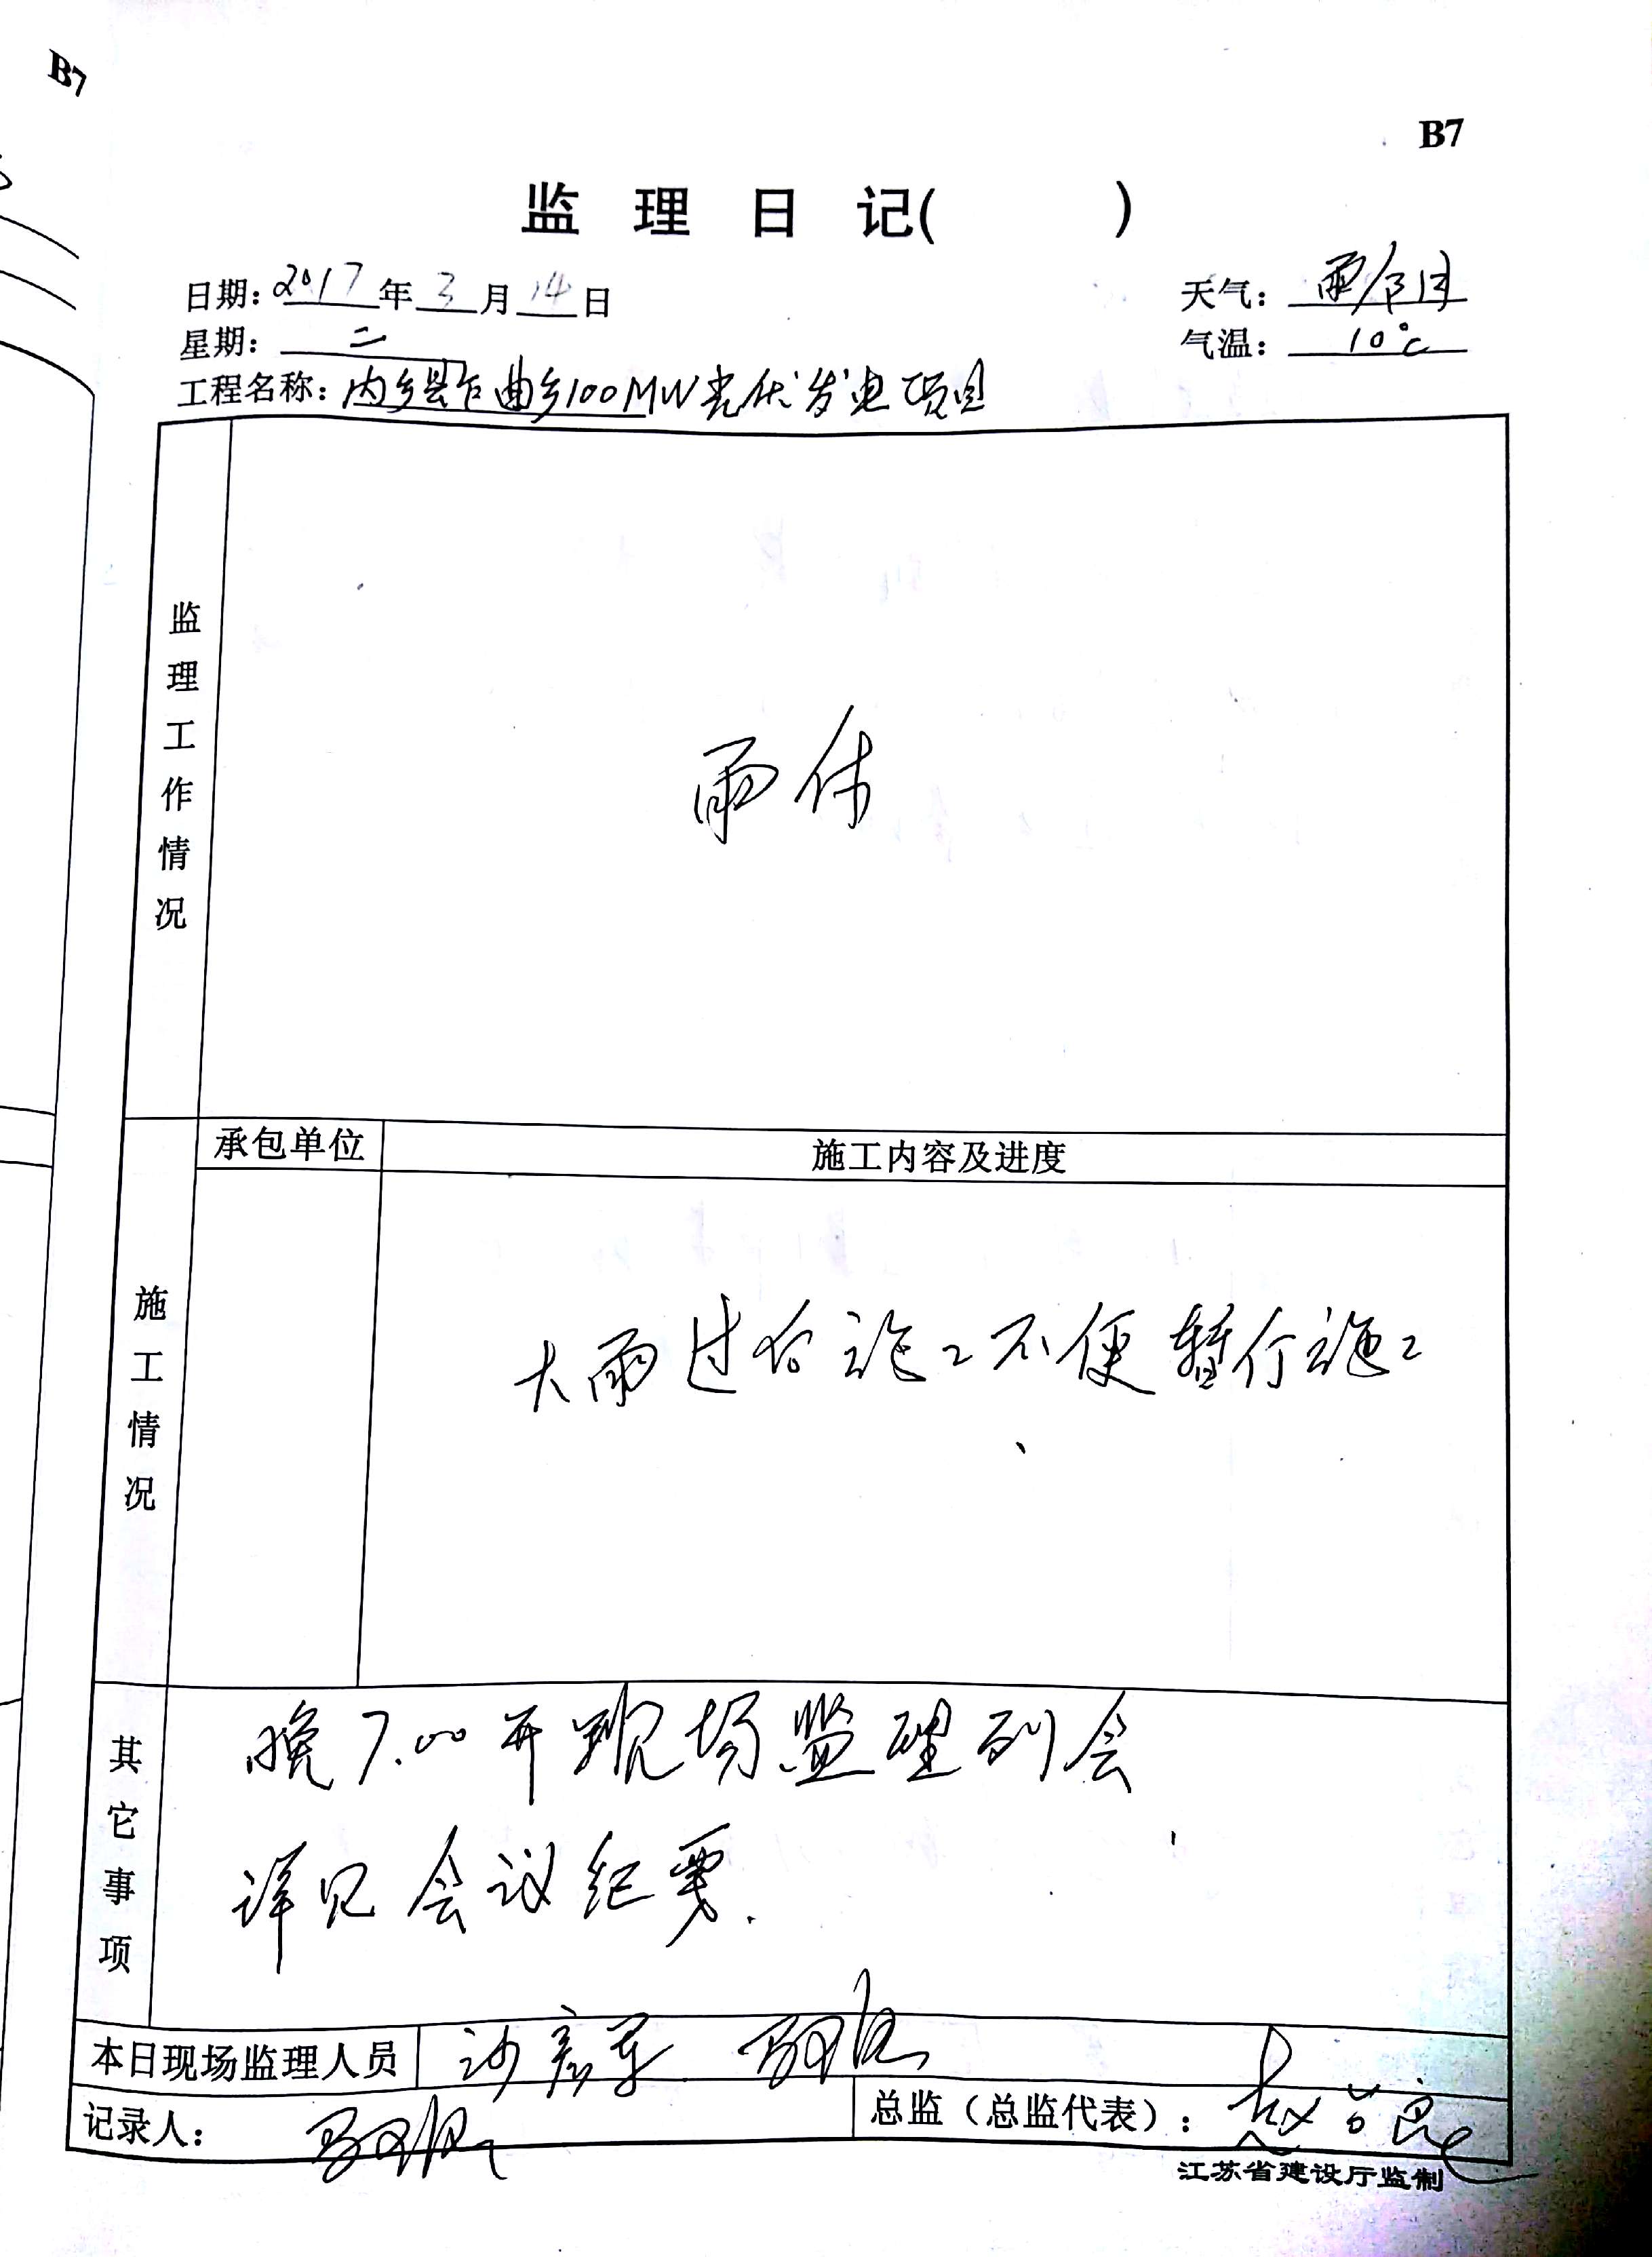 B7
B7
监理日记( )
日期:2017年3月14日
天气:雨/阴
星期:二
气温:10℃
工程名称:内乡县乍曲乡100MW光伏发电项目
监理工作情况
雨休
承包单位
施工内容及进度
施工情况
大雨过后施工不便暂停施工
其它事项
晚7.00开现场监理例会
详见会议纪要.
本日现场监理人员
记录人:
总监(总监代表):
江苏省建设厅监制